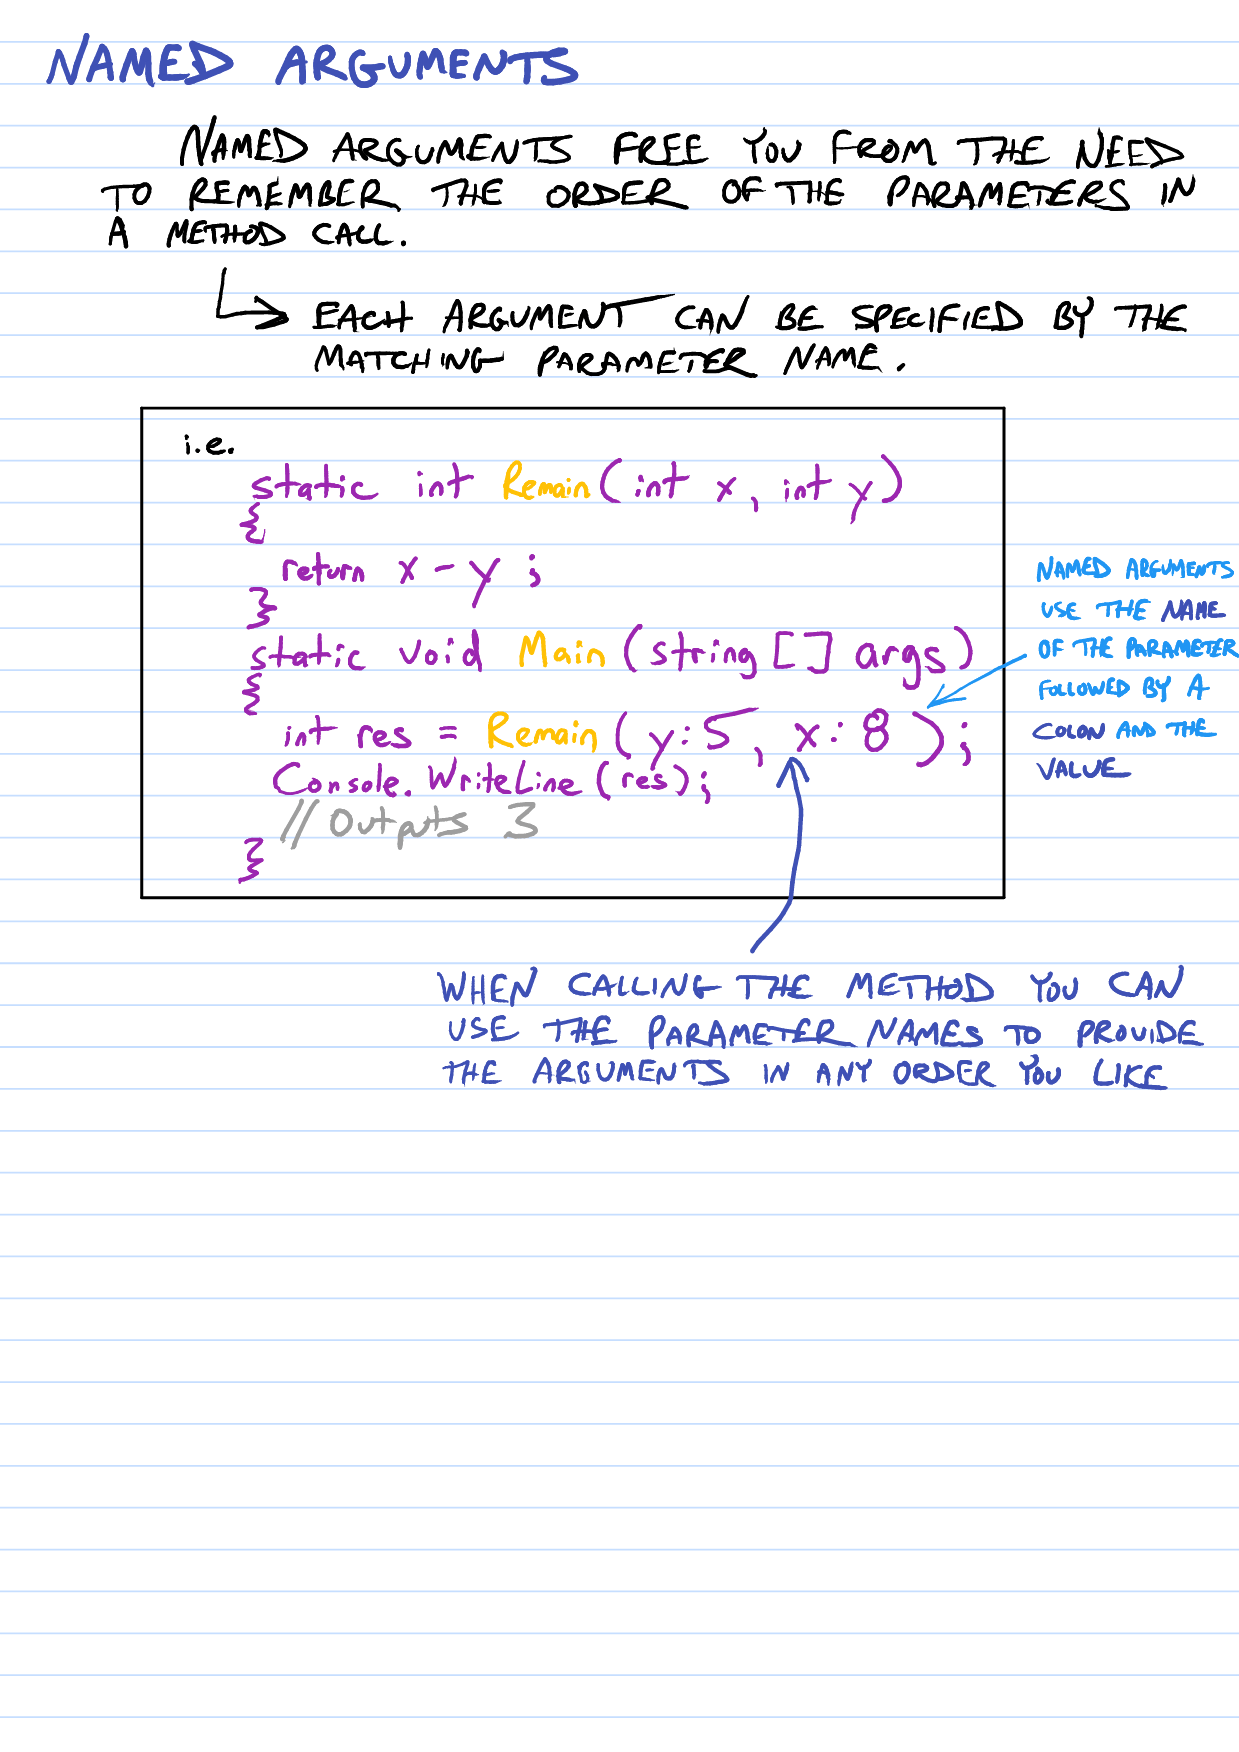 NAMED ARGUMENTS
NAMED ARGUMENTS FREE YOU FROM THE NEED
TO REMEMBER THE ORDER OF THE PARAMETERS IN
A METHOD CALL.
EACH ARGUMENT CAN BE SPECIFIED BY THE
MATCHING PARAMETER NAME.
i.e.
static int Remain(int x, int y)
{
return x - y ;
}
static void Main (string [] args)
{
int res = Remain (y:5, x:8);
Console.WriteLine (res);
// Outputs 3
}
NAMED ARGUMENTS
USE THE NAME
OF THE PARAMETER
FOLLOWED BY A
COLON AND THE
VALUE
WHEN CALLING THE METHOD YOU CAN
USE THE PARAMETER NAMES TO PROVIDE
THE ARGUMENTS IN ANY ORDER YOU LIKE